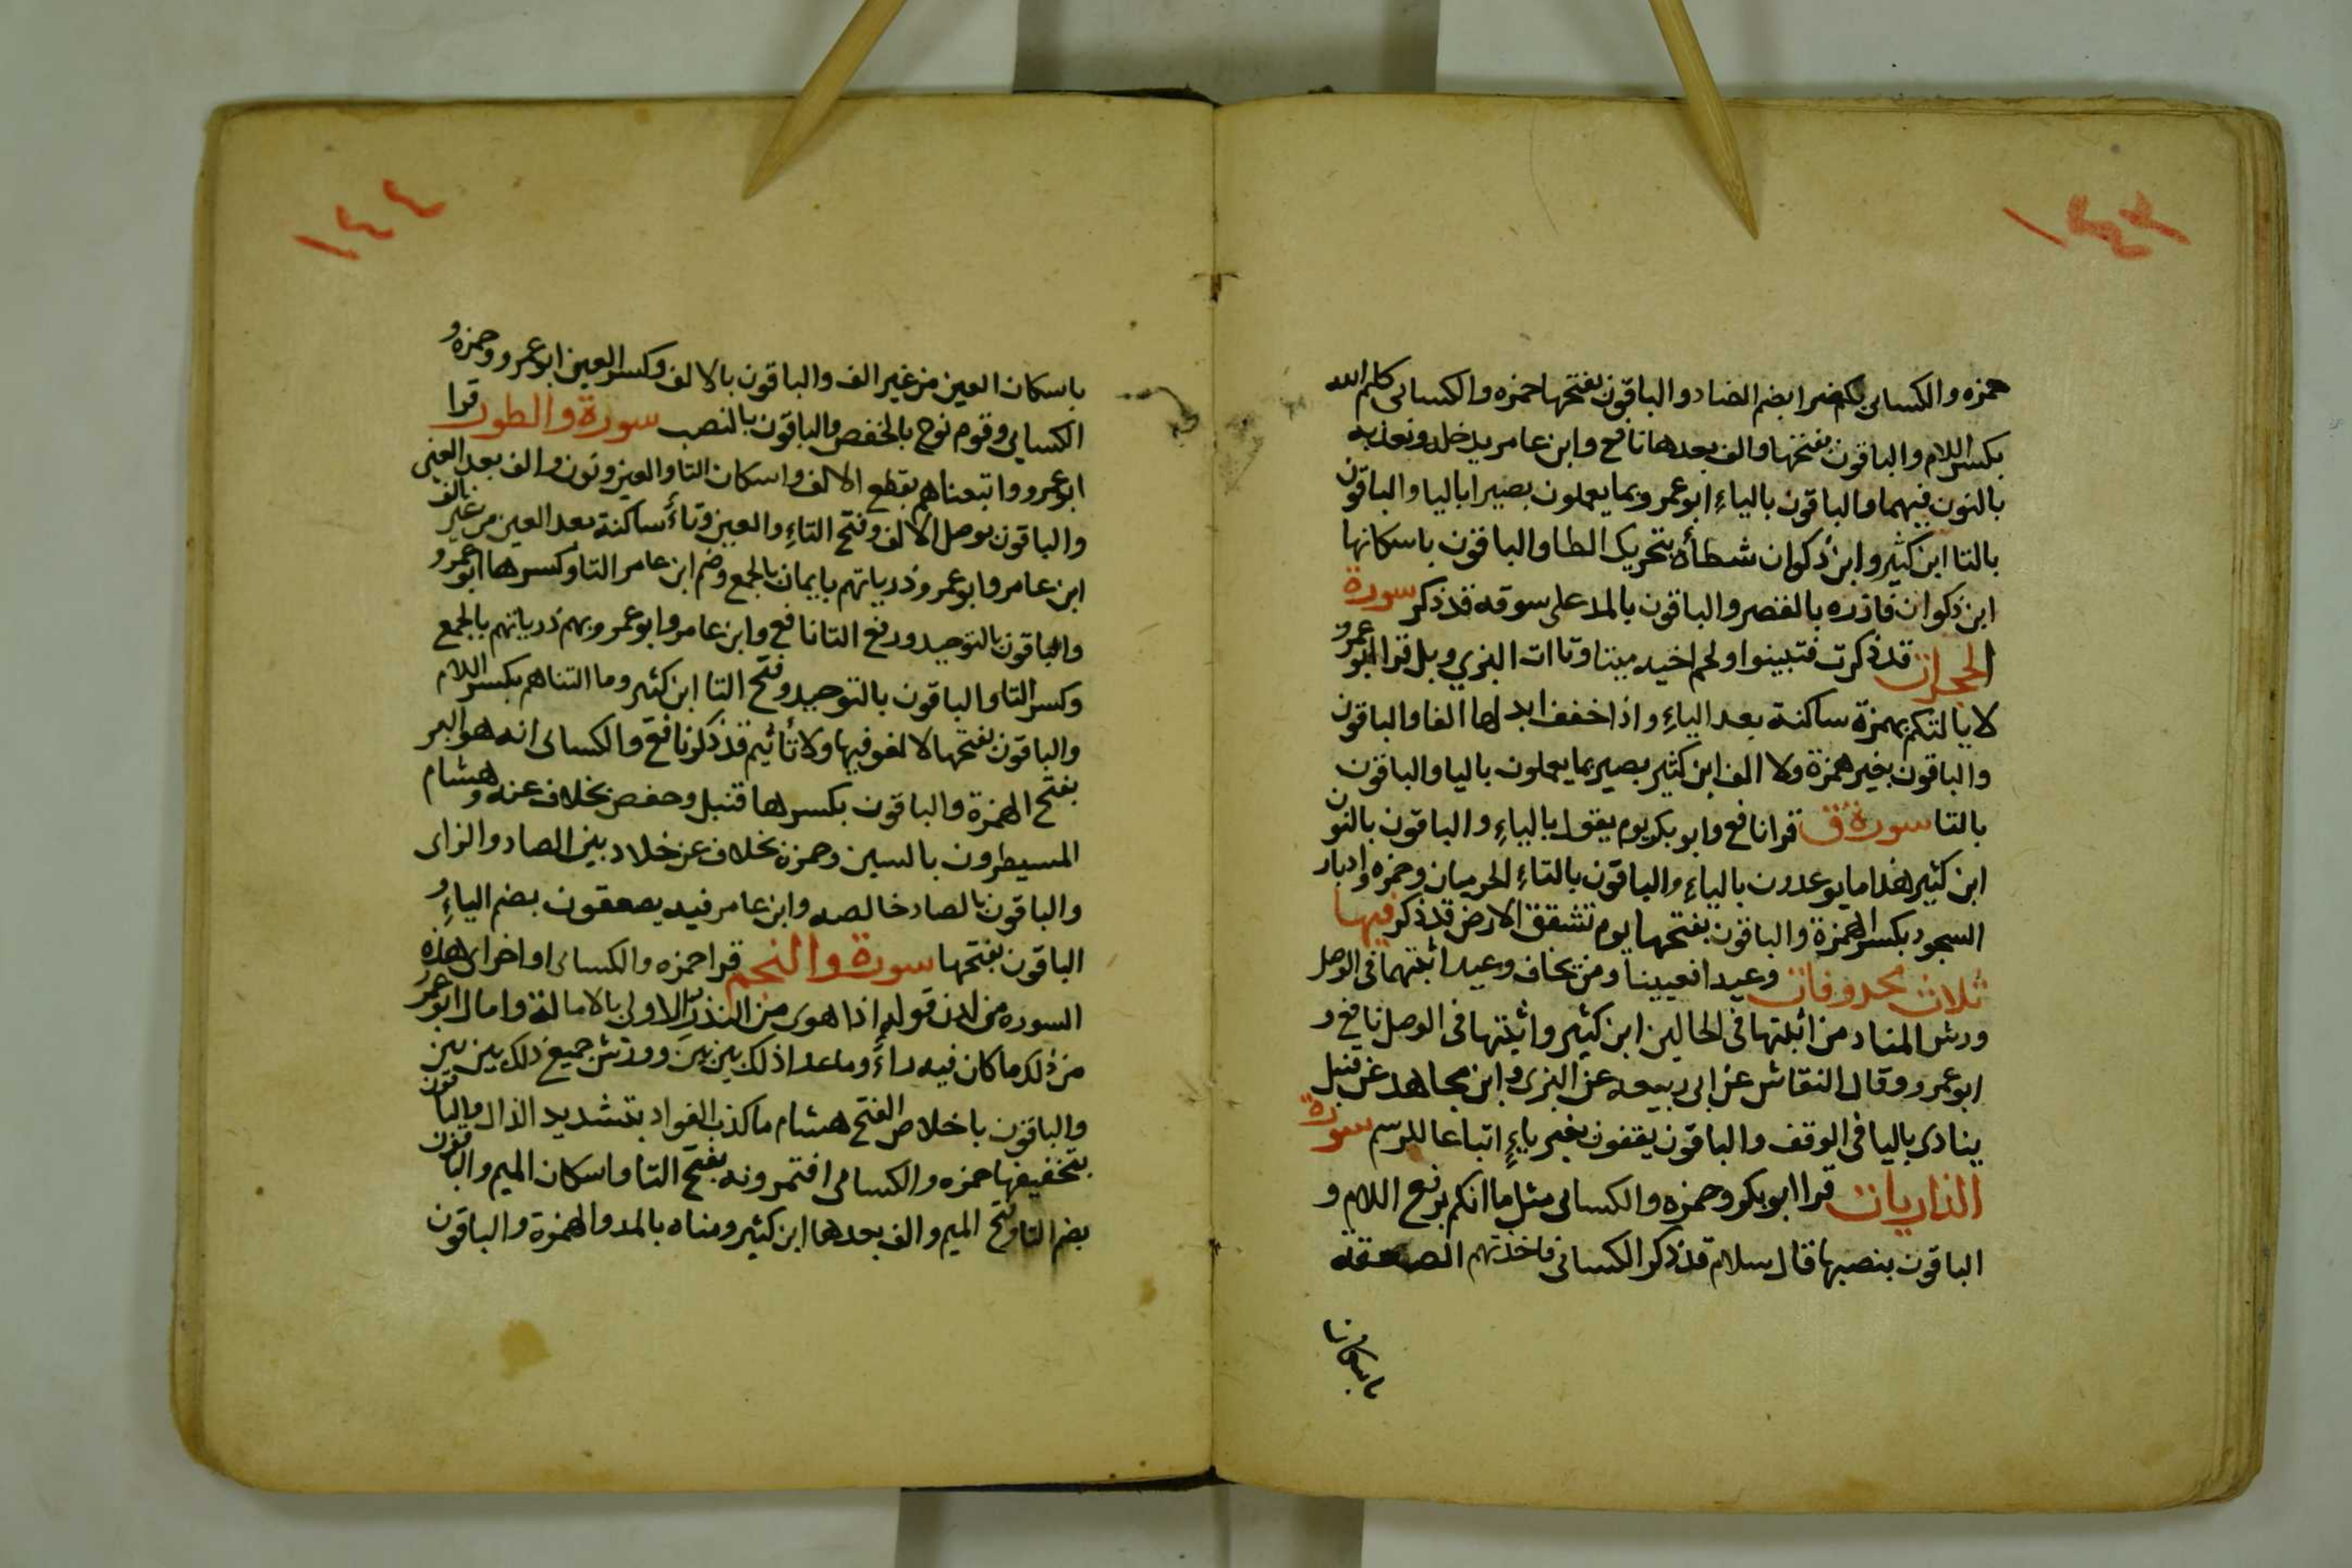 ١٤٣
حمزه والكسائى بكم ضرا بضم الضاد والباقون بفتحها حمزه والكسائى كلم الله
بكسر اللام والباقون بفتحها والف بعدها نافع وابن عامر يدخله ونعذبه
بالنون فيهما والباقون بالياءِ ابو عمرو بما يعملون بصيرا باليا والباقون
بالتا ابن كثير وابن ذكوان شطأه بتحريك الطا والباقون باسكانها
ابن ذكوان فازره بالقصر والباقون بالمد على سوقه قد ذكر سورة
الحجرات قد ذكرت فتبينوا ولحم اخيه ميتا وتاات البزي وبل قرا ابو عمرو
لا يالتكم بهمزة ساكنة بعد الياءِ واذا خفف ابدلها الفا والباقون
والباقون بغير همزة ولا الف ابن كثير بصير بما يعملون باليا والباقون
بالتا سورة ق قرا نافع وابو بكر يوم يقول بالياءِ والباقون بالنون
ابن كثير هذا ما يوعدون بالياءِ والباقون بالتاءِ الحرميان وحمزه وادبار
السجود بكسر الهمزة والباقون بفتحها يوم تشقق الارض قد ذكر فيها
ثلاث محذوفات وعيد افعيينا ومن يخاف وعيد اثبتهما فى الوصل
ورش المناد من اثبتها فى الحالين ابن كثير واثبتها فى الوصل نافع و
ابو عمرو وقال النقاش عن ابى ربيعه عن البزى وابن مجاهد عن قنبل
ينادى باليا فى الوقف والباقون يقفون بغير ياءٍ اتباعا للرسم سورة
الذاريات قرا ابو بكر وحمزه والكسائى مثل ما انكم برفع اللام و
الباقون بنصبها قال سلام قد ذكر الكسائى فاخذتهم الصعقة
باسكان
١٤٤
باسكان العين من غير الف والباقون بالالف وكسر العين ابو عمرو وحمزه و
الكسايى وقوم نوح بالخفض والباقون بالنصب سورة والطور قرا
ابو عمرو واتبعناهم بقطع الالف واسكان التا والعين ونون والف بعد العين
والباقون بوصل الالف وفتح التاءِ والعين وتاءً ساكنة بعد العين من غير الف
ابن عامر وابو عمرو ذرياتهم بايمان بالجمع وضم ابن عامر التا وكسرها ابو عمرو
والباقون بالتوحيد ورفع التا نافع وابن عامر وابو عمرو بهم ذرياتهم بالجمع
وكسر التا والباقون بالتوحيد وفتح التا ابن كثير وما التناهم بكسر اللام
والباقون بفتحها لا لغو فيها ولا تأثيم قد ذكر نافع والكسائى انه هو البر
بفتح الهمزة والباقون بكسرها قنبل وحفص بخلاف عنه وهشام
المسيطرون بالسين وحمزه بخلاف عن خلاد بين الصاد والزاى
والباقون بالصاد خالصه وابن عامر فيه يصعقون بضم الياءِ و
الباقون بفتحها سورة والنجم قرا حمزه والكسائى اواخر اى هذه
السوره من لدن قوله اذا هوى من النذر الاولى بالامالة وامال ابو عمرو
من ذلك ما كان فيه راءً وما عدا ذلك بين بين وورش جميع ذلك بين بين
والباقون باخلاص الفتح هشام ما كذب الفواد بتشديد الذال والباقون
بتخفيفها حمزه والكسائى افتمرونه بفتح التا واسكان الميم والباقون
بضم التا وفتح الميم والف بعدها ابن كثير ومناه بالمد والهمزة والباقون